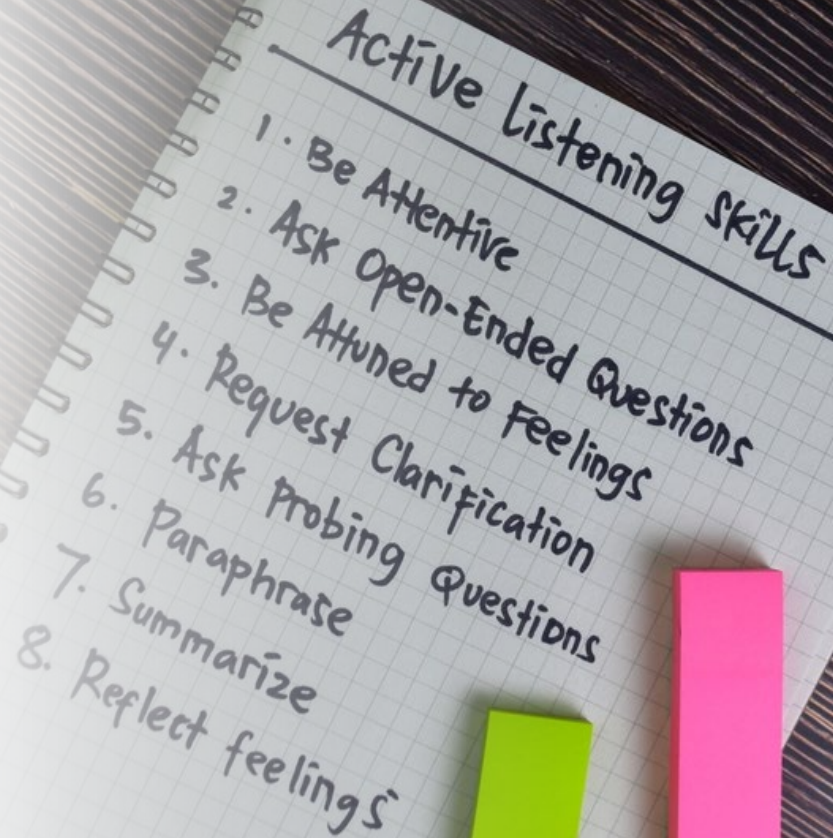 Active Listening Skills
1. Be Attentive
2. Ask Open-Ended Questions
3. Be Attuned to Feelings
4. Request Clarification
5. Ask Probing Questions
6. Paraphrase
7. Summarize
8. Reflect feelings